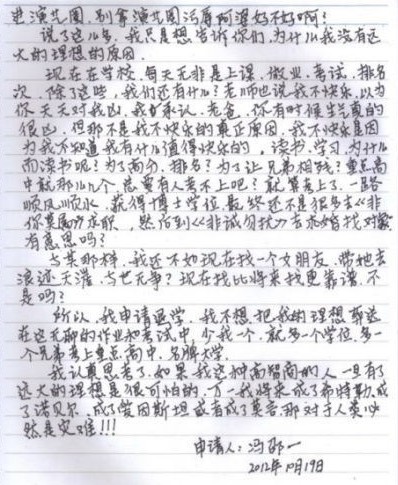 进演艺圈,别拿演艺圈污辱阿婆好不好啊?
说了这么多,我只是想告诉你们,为什么我没有远
大的理想的原因。
现在在学校,每天无非是上课、做业、考试、排名
次,除了这些,我们还有什么?老师也说我不快乐,以为
你天天对我凶,我承认,老爸,你有时候生气真的
很凶,但那不是我不快乐的真正原因,我不快乐是因
为我不知道我有什么值得快乐的。读书,学习,为什么
而读书呢?为了高分,排名?为了让兄弟相残?重点高
中就那么几个,总要有人考不上吧?就算考上了,一路
顺风顺水,获得博士学位,最终还不是很多去《非
你莫属》求职,然后到《非诚勿扰》去找对象
有意思吗?
与其那样,我还不如现在找一个女朋友,带她去
浪迹天涯,与世无争?现在找比将来找更靠谱,不
是吗?
所以,我申请退学,我不想把我的理想葬送
在这无聊的作业和考试中,少我一个,就多一个学位,多一
个兄弟考上重点高中,名牌大学。
我认真思考了,如果我这种高智商的人一旦有了
远大的理想是很可怕的,万一我将来成了希特勒,成
了诺贝尔,成了爱因斯坦或者成了莫言,那对于人类必
然是灾难!!!
申请人:冯邵一
2012年10月19日